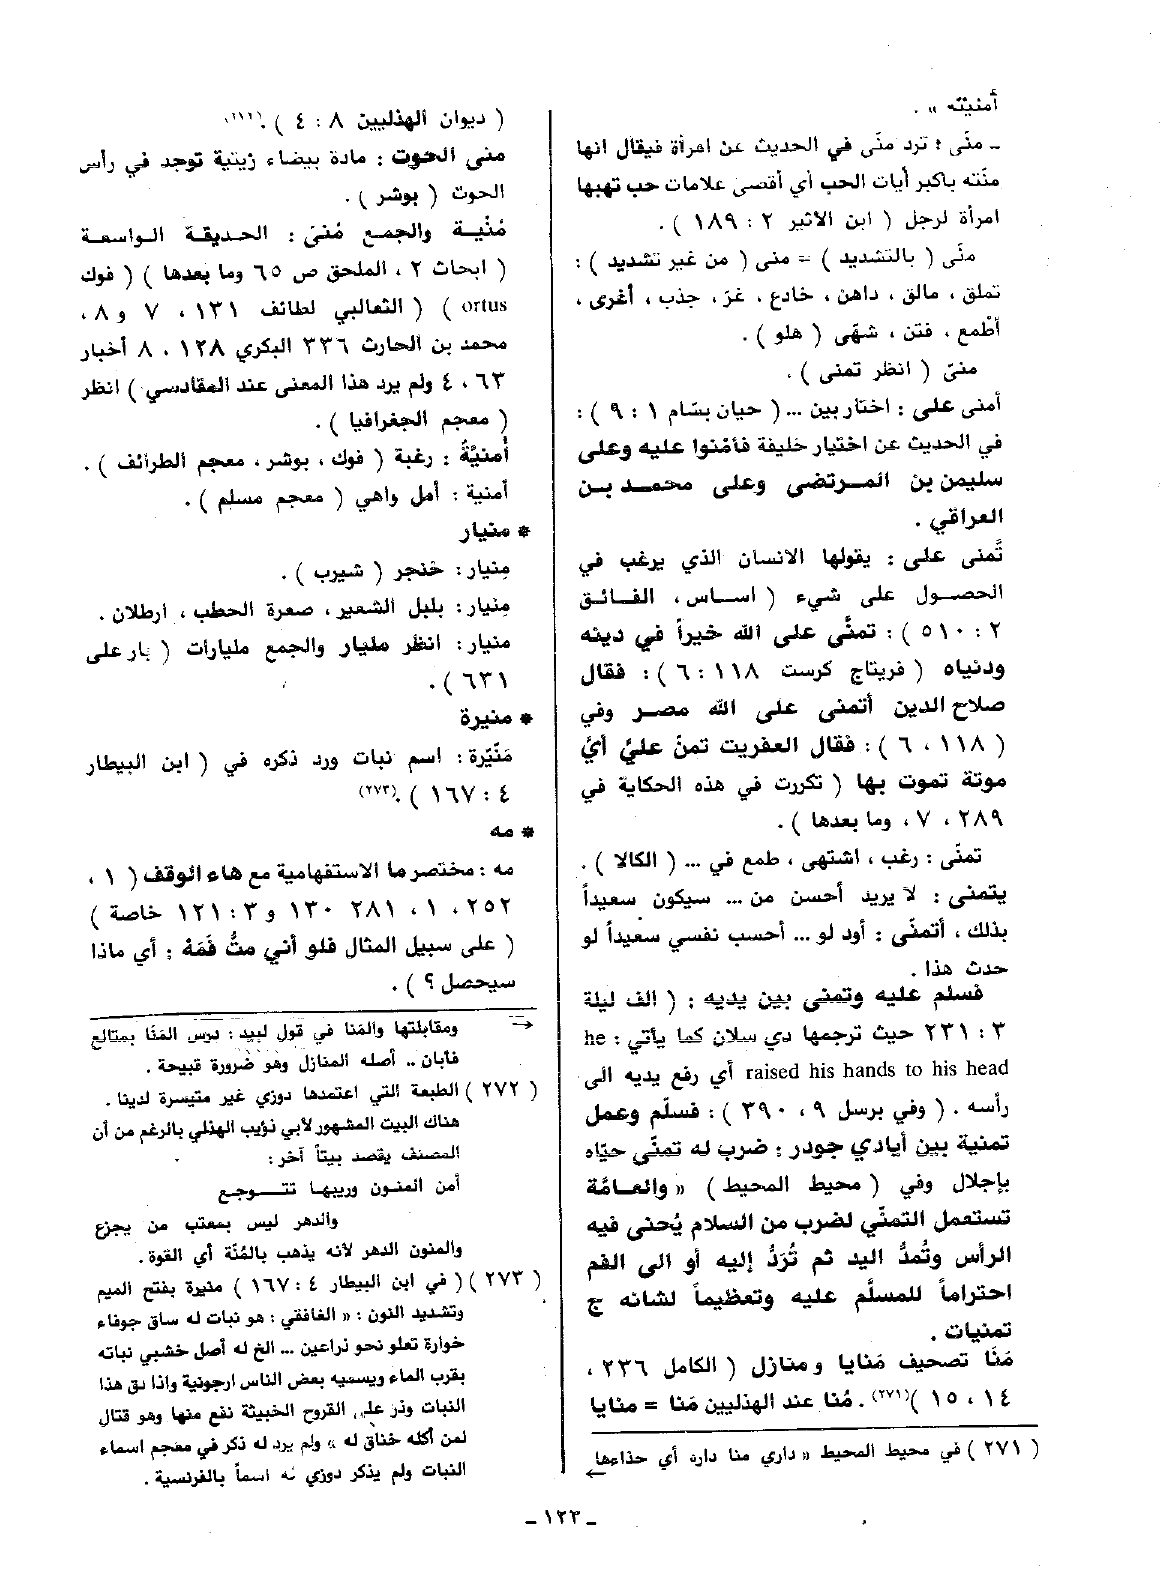 أمنيته » .
ـ منّى : ترد منّى في الحديث عن امرأة فيقال انها
منّته بأكبر أيات الحب أي أقصى علامات حب تهبها
امرأة لرجل ( ابن الاثير ٢ : ١٨٩ ) .
منّى ( بالتشديد ) = منى ( من غير تشديد ) :
تملق ، مالق ، داهن ، خادع ، غرّ ، جذب ، أغرى ،
أطمع ، فتن ، شهّى ( هلو ) .
منىّ ( انظر تمنى ) .
أمنى على : اختار بين ... ( حيان بسّام ١ : ٩ ) :
في الحديث عن اختيار خليفة فأمْنوا عليه وعلى
سليمن بن المرتضى وعلى محمد بن
العراقي .
تَّمنى على : يقولها الانسان الذي يرغب في
الحصول على شيء ( اساس ، الفائق
٢ : ٥١٠ ) : تمنَّى على الله خيراً في دينه
ودنياه ( فريتاج كرست ١١٨ : ٦ ) : فقال
صلاح الدين أتمنى على الله مصر وفي
( ١١٨ ، ٦ ) : فقال العفريت تمنّ عليَّ أيَّ
موتة تموت بها ( تكررت في هذه الحكاية في
٢٨٩ ، ٧ ، وما بعدها ) .
تمنّى : رغب ، اشتهى ، طمع في ... ( الكالا ) .
يتمنى : لا يريد أحسن من ... سيكون سعيداً
بذلك ، أتمنّى : أود لو ... أحسب نفسي سعيداً لو
حدث هذا .
فسلم عليه وتمنى بين يديه : ( الف ليلة
٣ : ٢٣١ حيث ترجمها دي سلان كما يأتي : he
raised his hands to his head أي رفع يديه الى
رأسه . ( وفي برسل ٩ ، ٣٩٠ ) : فسلّم وعمل
تمنية بين أيادي جودر : ضرب له تمنّى حيّاه
بإجلال وفي ( محيط المحيط ) « والعامَّة
تستعمل التمنّي لضرب من السلام يُحنى فيه
الرأس وتُمدُّ اليد ثم تُرَدُّ إليه أو الى الفم
احتراماً للمسلَّم عليه وتعظيماً لشانه ج
تمنيات .
مَنَا تصحيف مَنايا ومنازل ( الكامل ٢٣٦ ،
١٤ ، ١٥ )(٢٧١). مُنا عند الهذليين مَنا = منايا
( ٢٧١ ) في محيط المحيط « داري منا داره أي حذاءها
( ديوان الهذليين ٨ : ٤ ) .
منى الحوت : مادة بيضاء زيتية توجد في رأس
الحوت ( بوشر ) .
مُنْية والجمع مُنىً : الحديقة الواسعة
( ابحاث ٢ ، الملحق ص ٦٥ وما بعدها ) ( فوك
ortus ) ( الثعالبي لطائف ١٣١ ، ٧ و ٨ ،
محمد بن الحارث ٣٣٦ البكري ١٢٨ ، ٨ أخبار
٦٣ ، ٤ ولم يرد هذا المعنى عند المقادسي ) انظر
( معجم الجغرافيا ) .
أُمنيَّةُ : رغبة ( فوك ، بوشر ، معجم الطرائف ) .
أمنية : أمل واهي ( معجم مسلم ) .
* منيار
مِنيار : خنجر ( شيرب ) .
مِنيار : بلبل الشعير ، صعرة الحطب ، ارطلان .
منيار : انظر مليار والجمع مليارات ( بار على
٦٣١ ) .
* منيرة
مَنّيّرة : اسم نبات ورد ذكره في ( ابن البيطار
٤ : ١٦٧ ) .(٢٧٣)
* مه
مه : مختصر ما الاستفهامية مع هاء الوقف ( ١ ،
٢٥٢ ، ١ ، ٢٨١ ١٣٠ و ٣ : ١٢١ خاصة )
( على سبيل المثال فلو أني متُّ فَمَهْ : أي ماذا
سيحصل ؟ ) .
ومقابلتها والمَنا في قول لبيد : درس المَنَا بمتالع
فأبان .. أصله المنازل وهو ضرورة قبيحة .
( ٢٧٢ ) الطبعة التي اعتمدها دوزي غير متيسرة لدينا .
هناك البيت المشهور لأبي ذؤيب الهذلي بالرغم من أن
المصنف يقصد بيتاً آخر :
أمن المنون وريبها تتوجع
والدهر ليس بمعتب من يجزع
والمنون الدهر لأنه يذهب بالمُنّة أي القوة .
( ٢٧٣ ) ( في ابن البيطار ٤ : ١٦٧ ) منيرة بفتح الميم
وتشديد النون : « الغافقي : هو نبات له ساق جوفاء
خوارة تعلو نحو ذراعين ... الخ له أصل خشبي نباته
بقرب الماء ويسميه بعض الناس ارجونية واذا دق هذا
النبات وذر على القروح الخبيثة نفع منها وهو قتال
لمن أكله خناق له » ولم يرد له ذكر في معجم اسماء
النبات ولم يذكر دوزي له اسماً بالفرنسية .
ـ ١٢٣ ـ